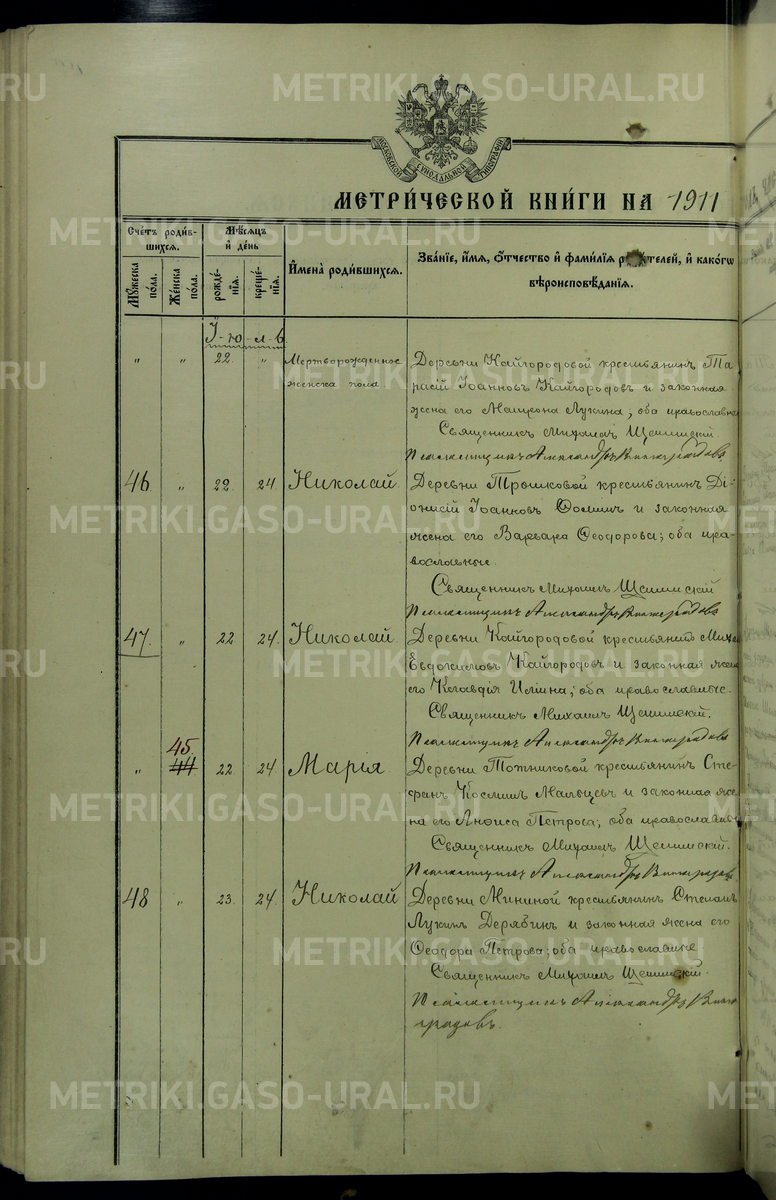 METRIKI.GASO-URAL.RU
МОСКОВСКОЙ СѴНОДАЛЬНОЙ ТИПОГРАФІИ
МЕТРИ́ЧЕСКОЙ КНИ́ГИ НА 1911
Сче́тъ роди́в-
шихся.
Мꙋ́жеска по́ла.
Же́нска по́ла.
Мѣ́сяцъ
и҆ де́нь
рожде́-
нїѧ.
креще́-
нїѧ.
И҆мена̀ роди́вшихся.
Зва́нїе, и҆́мѧ, ѻ҆́тчество и҆ фами́лїѧ родителей, и҆ како́гѡ
вѣроисповѣ́данїѧ.
І-ю-л-ь
" " 22. " Мертворожденное Деревни Кайгородовой крестьянинъ Та
женска пола расій Іоанновъ Кайгородовъ и законная
жена его Матрона Лукина; оба православн
Священникъ Михаилъ
Псаломщикъ Александръ Виноградовъ
46. " 22. 24. Николай Деревни Трошковой крестьянинъ Ді-
онисій Іоанновъ Ѳоминъ и законная
жена его Варвара Ѳеодорова; оба пра-
вославные.
Священникъ Михаилъ
Псаломщикъ Александръ Виноградовъ
47. " 22 24. Николай Деревни Кайгородовой крестьянинъ Миха
Евдокимовъ Кайгородовъ и законная жена
его Клавдія Иліина; оба православные.
Священникъ Михаилъ
Псаломщикъ Александръ Виноградовъ
" 45. 44 22 24. Марія Деревни крестьянинъ Сте-
фанъ Косминъ Мальцевъ и законная же
на его Анѳиса Петрова; оба православн
Священникъ Михаилъ
Псаломщикъ Александръ Виноградовъ
48 " 23. 24. Николай Деревни Мининой крестьянинъ Стефанъ
Лукинъ Дерябинъ и законная жена его
Ѳеодора Петрова; оба православные
Священникъ Михаилъ
Псаломщикъ Александръ Вино
градовъ.